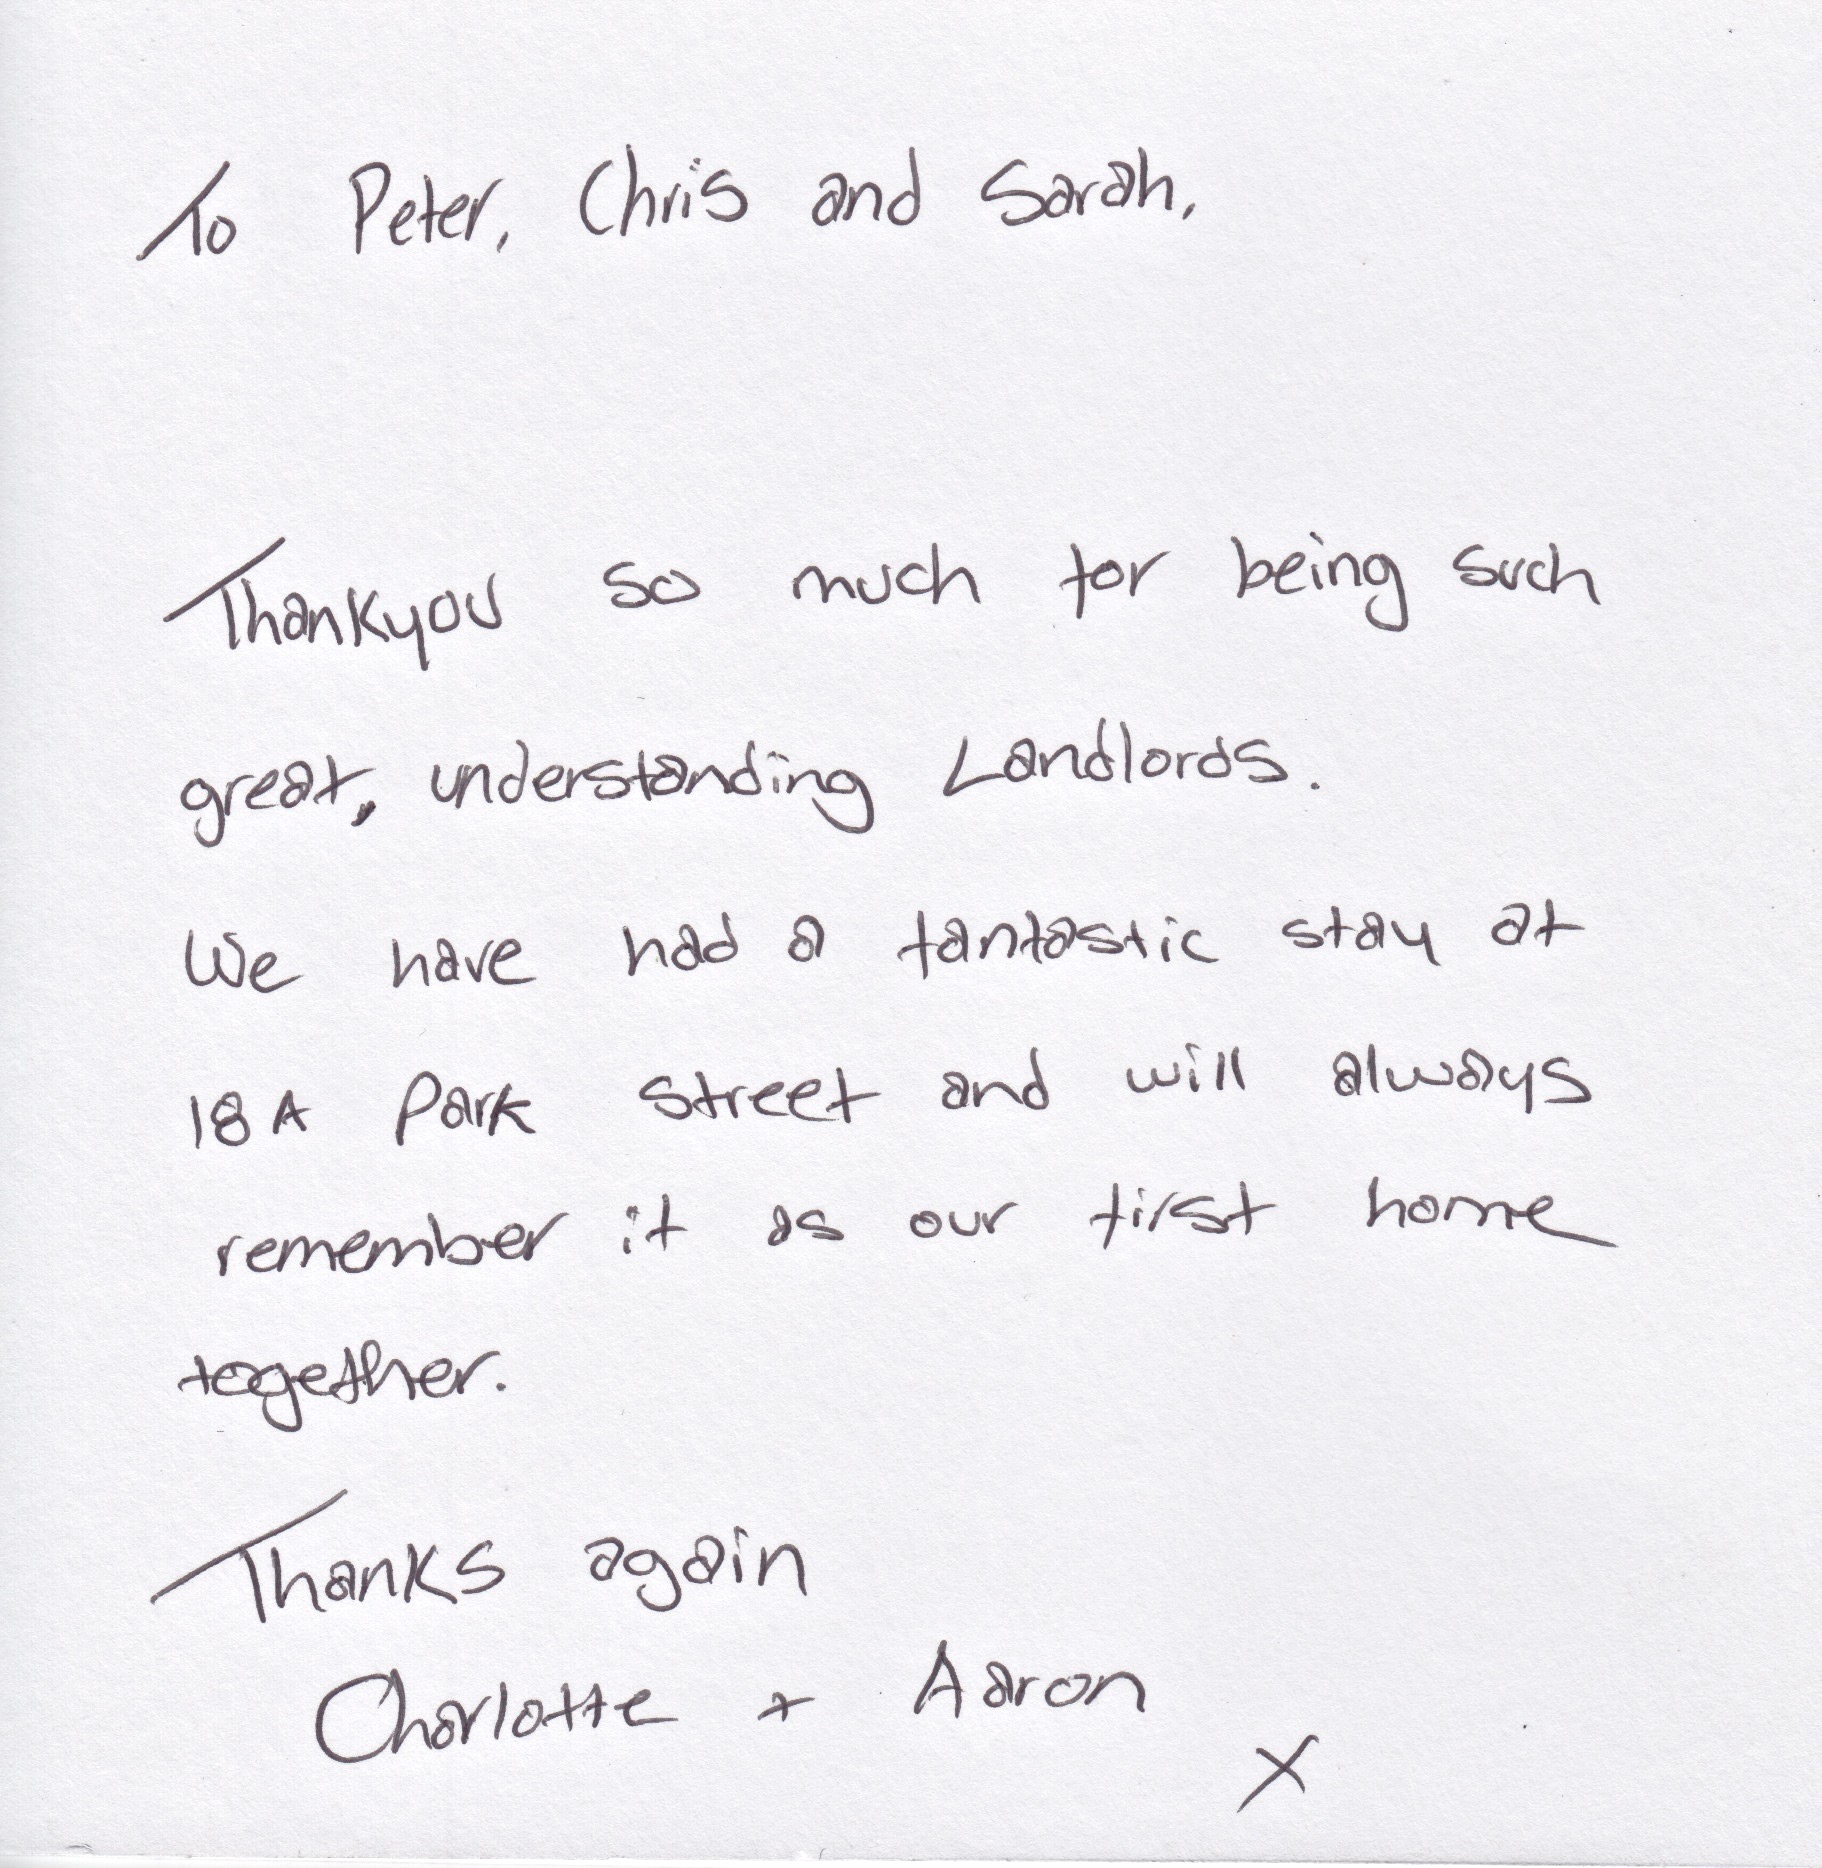 To Peter, Chris and Sarah,
Thankyou so much for being such
great, understanding Landlords.
We have had a fantastic stay at
18A Park street and will always
remember it as our first home
together.
Thanks again
Charlotte + Aaron
X